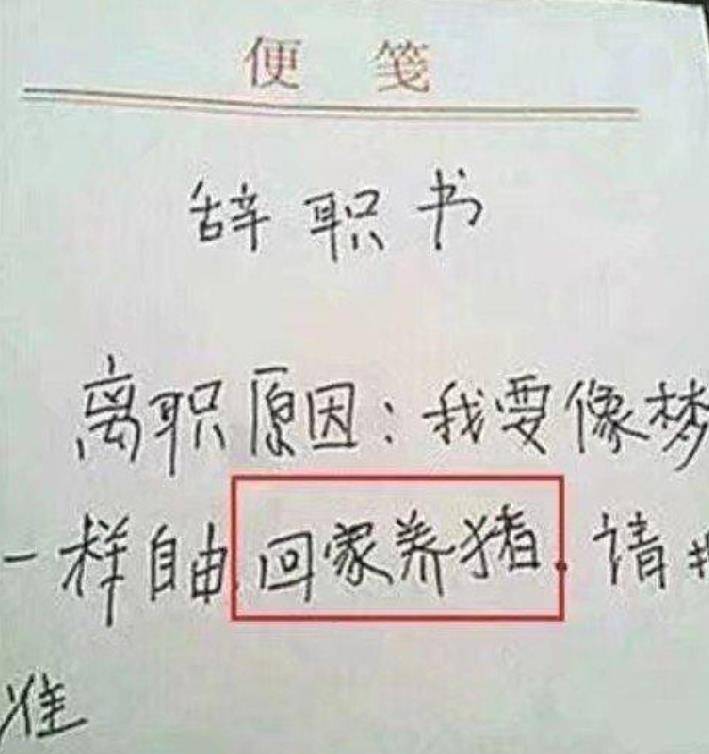 便 笺
辞职书
离职原因：我要像梦
一样自由,回家养猪.请
准